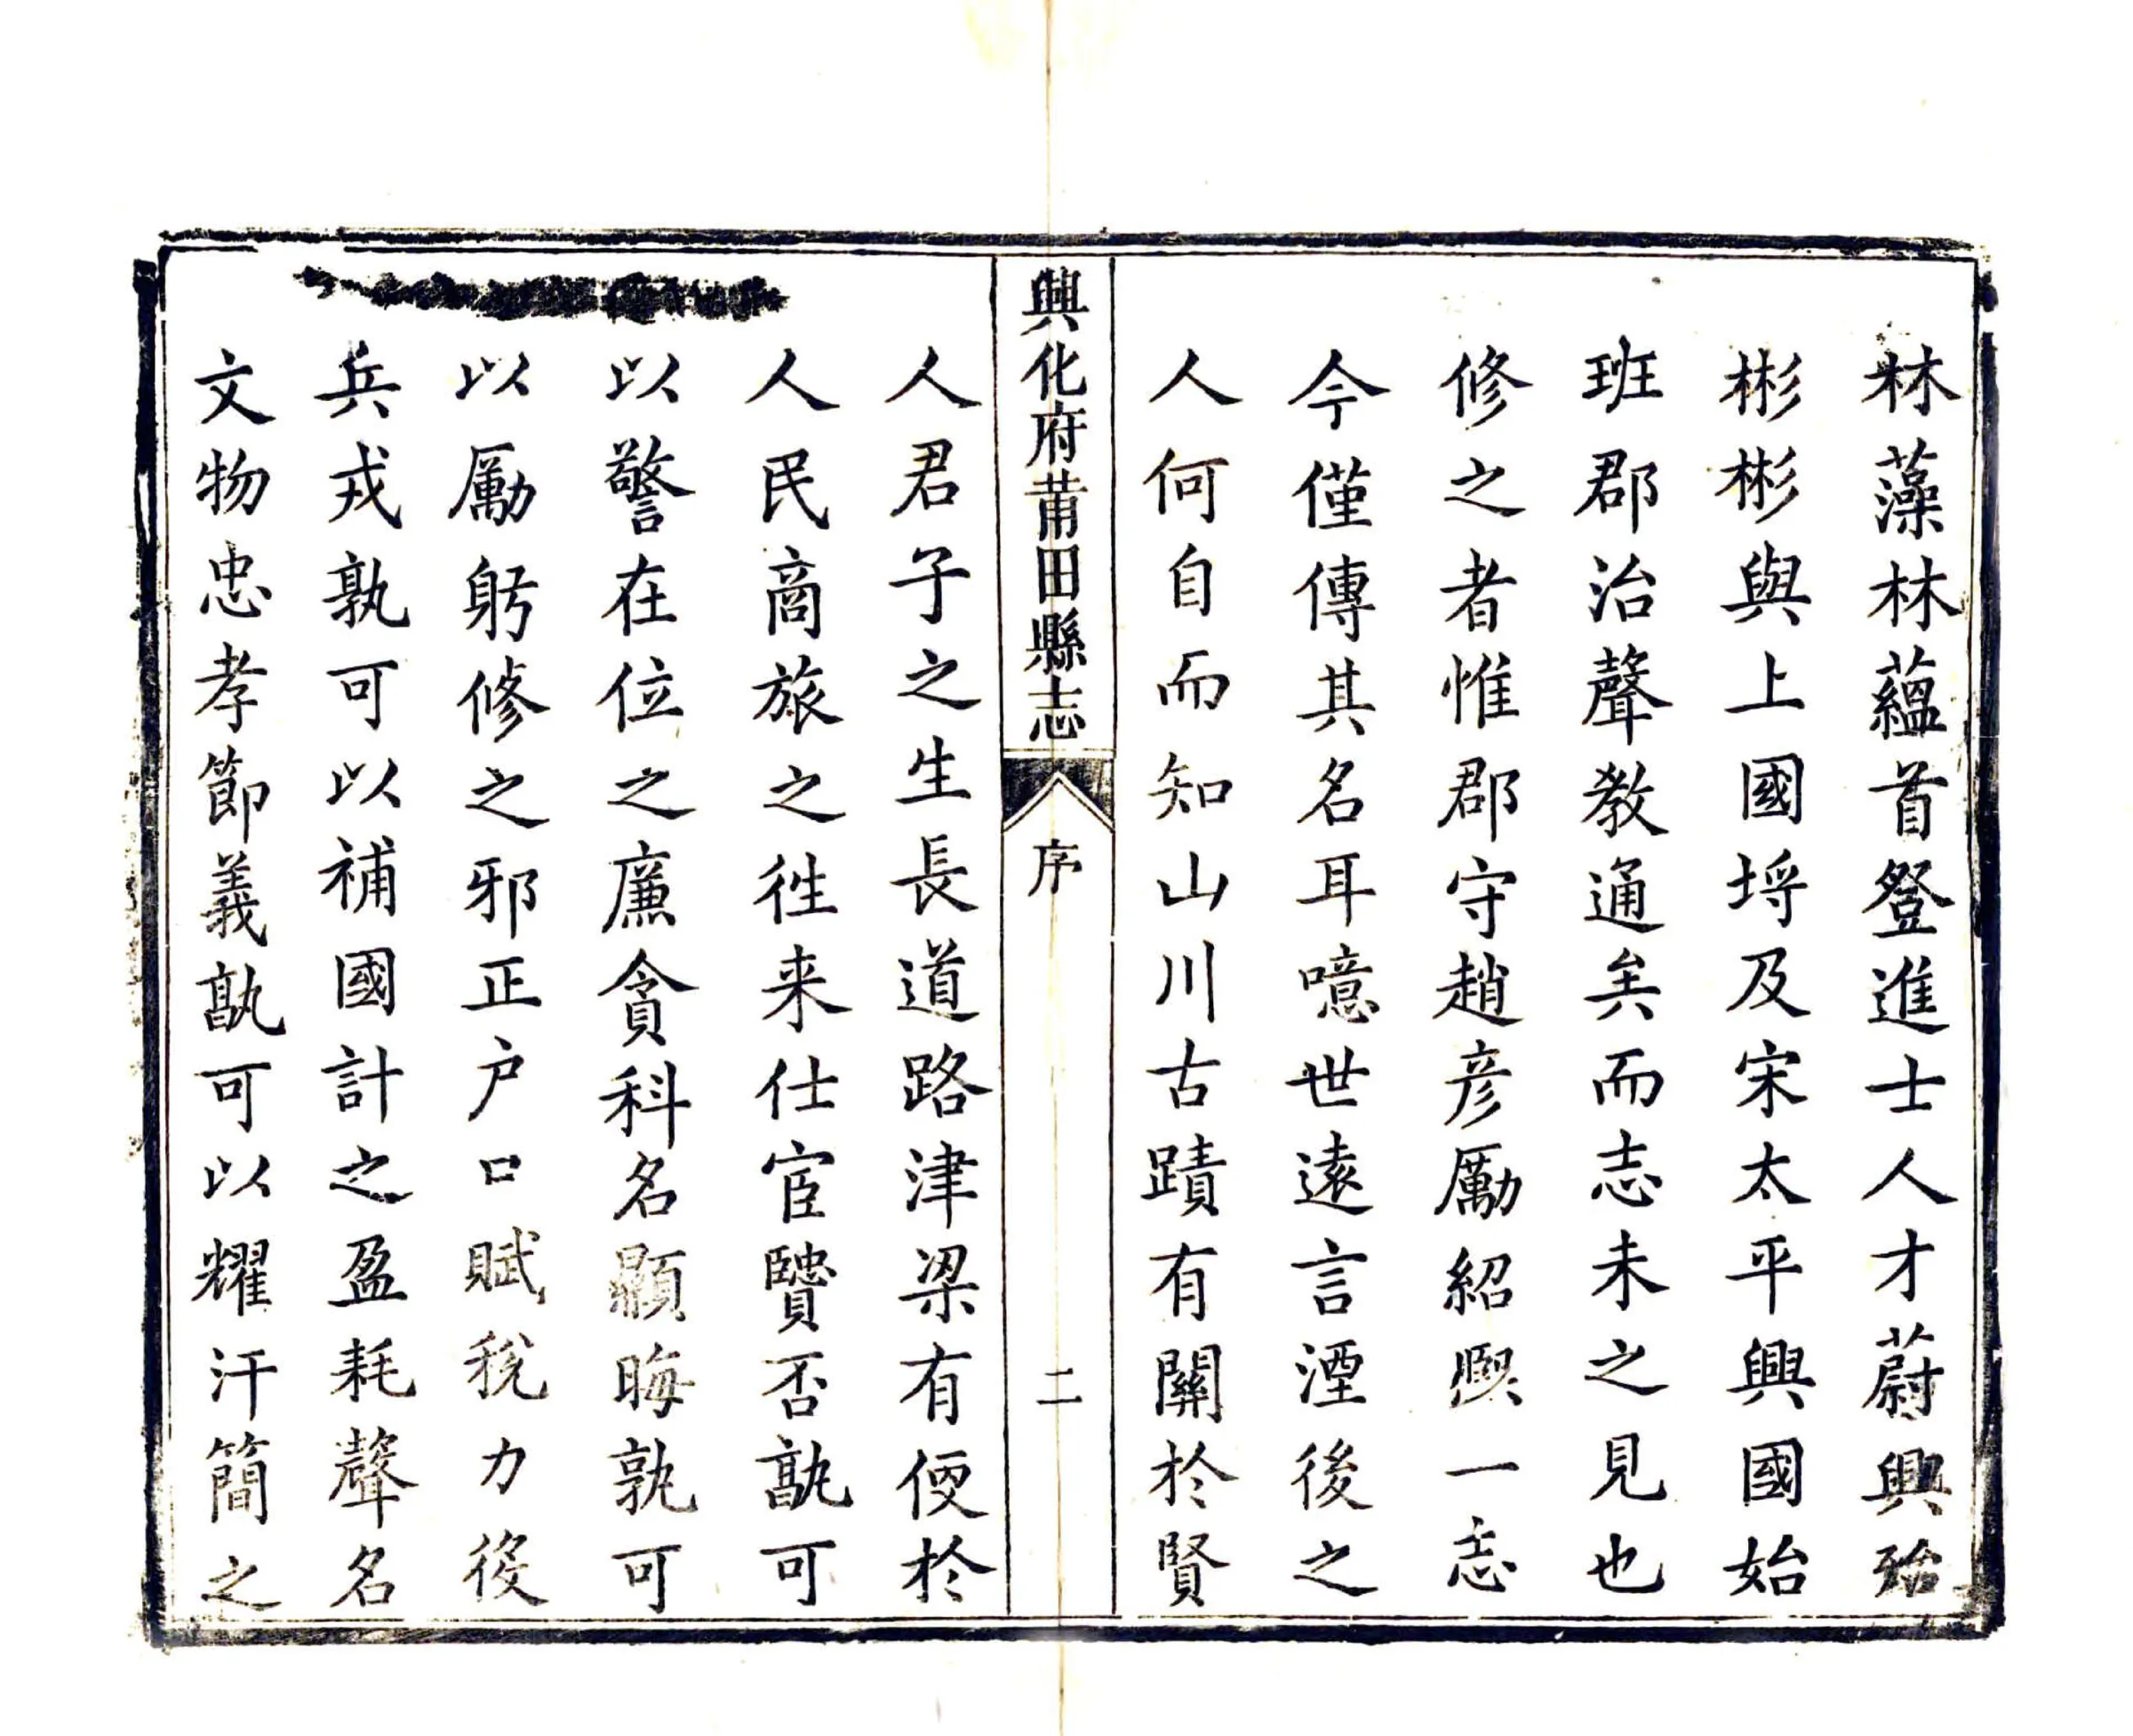 林藻林蘊首登進士人才蔚興殆
彬彬與上國埒及宋太平興國始
班郡治聲教通矣而志未之見也
修之者惟郡守趙彦勵紹熈一志
今僅傳其名耳噫世逺言湮後之
人何自而知山川古蹟有關於賢
興化府莆田縣志
序
二
人君子之生長道路津梁有便於
人民商旅之徃来仕宦賢否孰可
以警在位之廉貪科名顯晦孰可
以勵躬修之邪正户口賦稅力役
兵戎孰可以補國計之盈耗聲名
文物忠孝節義孰可以耀汗簡之